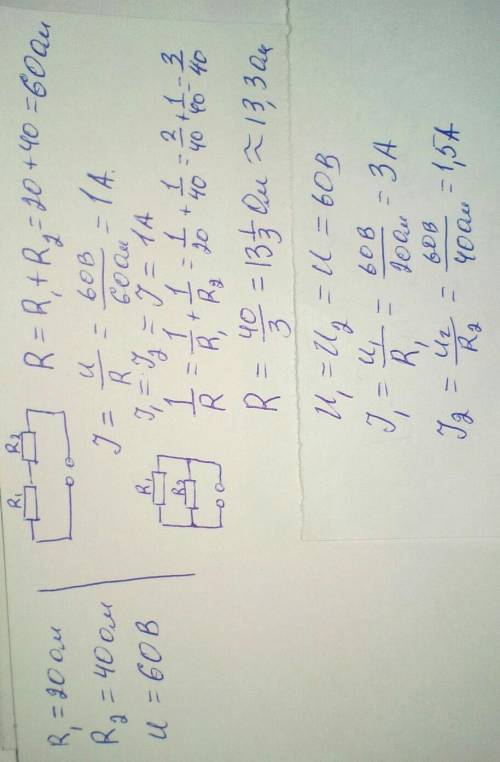 R₁ = 20 Ом
R₂ = 40 Ом
U = 60 В
R₁ R₂
R = R₁ + R₂ = 20 + 40 = 60 Ом
J = U/R = 60В/60Ом = 1 А.
J₁ = J₂ = J = 1 А
R₁
R₂
1/R = 1/R₁ + 1/R₂ = 1/20 + 1/40 = 2/40 + 1/40 = 3/40
R = 40/3 = 13 1/3 Ом ≈ 13,3 Ом
U₁ = U₂ = U = 60 В
J₁ = U₁/R₁ = 60В/20Ом = 3 А
J₂ = U₂/R₂ = 60В/40Ом = 1,5 А